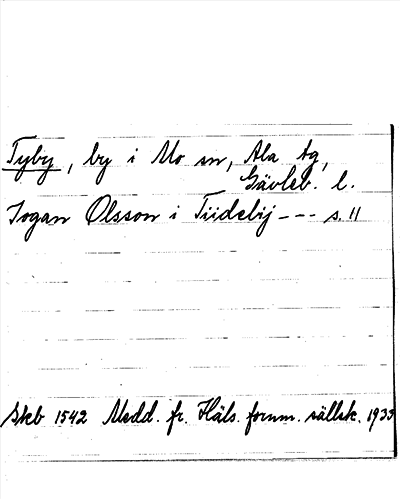 Tyby, by i Mo sn, Ala tg,
Gävleb. l.
Jogan Olsson i Tiidebij --- s. 11
Skb 1542 Medd. fr. Häls. fornm. sällsk. 1933